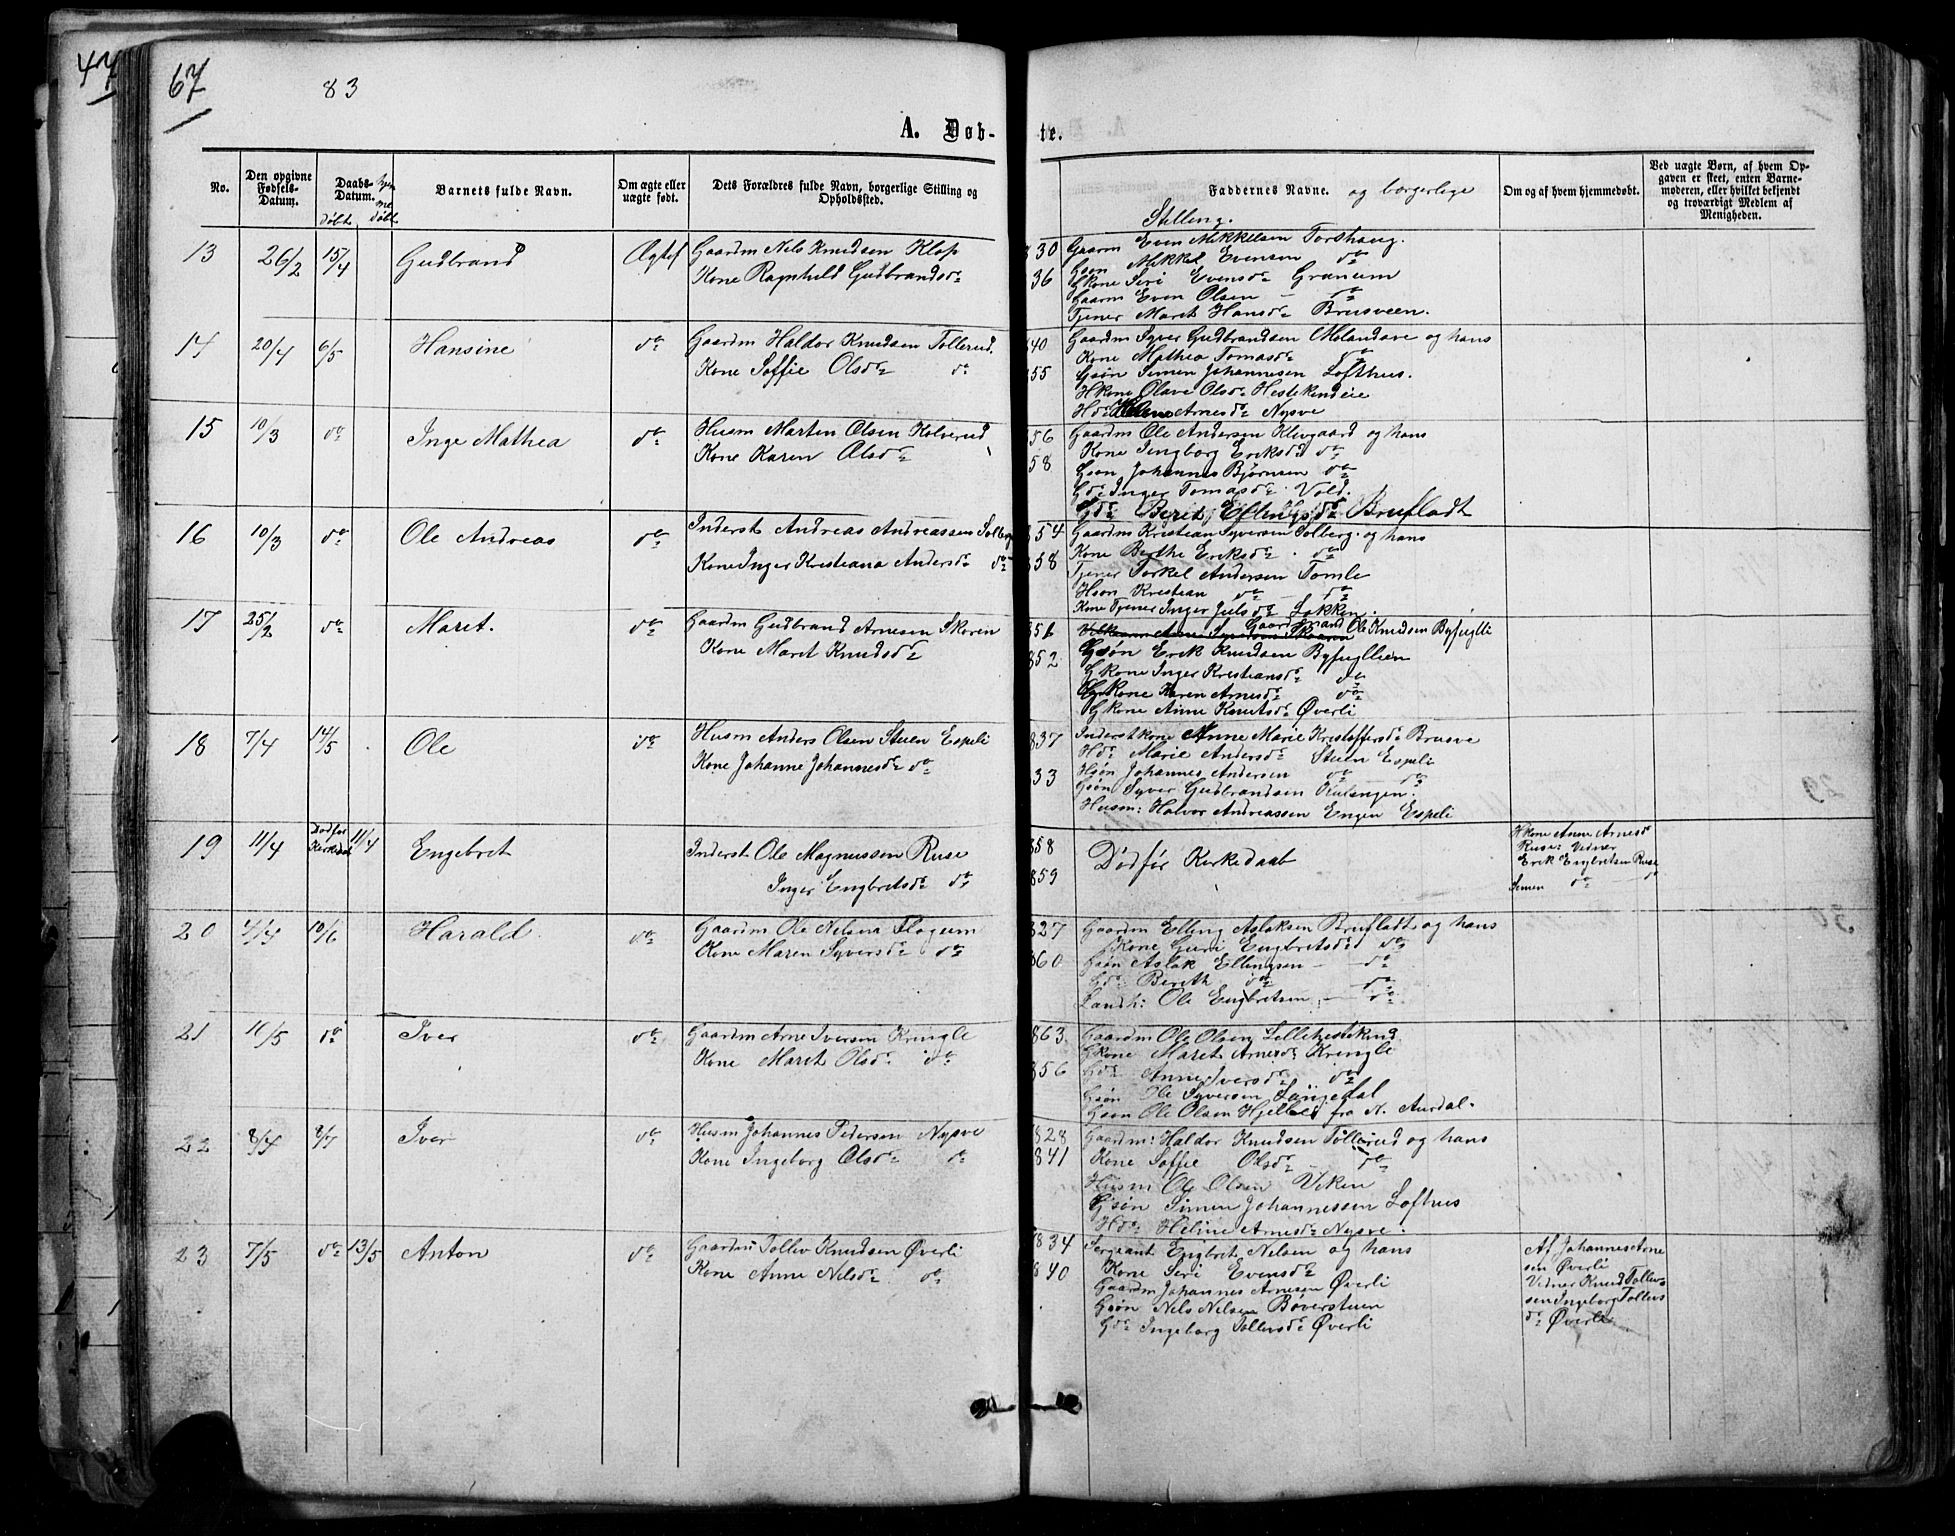 47
67
83
A. Døb-
te.
No.
Den opgivne Fødsels-Datum.
Daabs-Datum.
døbt
døbt
Barnets fulde Navn.
Om ægte eller uægte født.
Dets Forældres fulde Navn, borgerlige Stilling og Opholdssted.
Faddernes Navne. og borgerlige Stilling.
Om og af hvem hjemmedøbt.
Ved uægte Børn, af hvem Opgaven er skeet, enten Barnemoderen, eller hvilket bekjendt og troværdigt Medlem af Menigheden.
13 26/2 15/4 Gudbrand Ægtef Gaardm Nils Knudsen Klop
Kone Ragnhild Gudbrandsdr
830
36
Gaarm Even Mikkelsen Torshaug.
Gsøn Mikkel Evensen do
Gkone Siri Evensdr Granum
Gaarm Even Olsen — do
Tjener Marit Hansdr Brusveen.
14 20/4 6/5 Hansine do Gaardm Haldor Knudsen Tollerud.
Kone Soffie Olsdr do
840
855
Gaardm Syver Gudbrandsen Molandave og hans
Kone Mathea Tomasdr do
Gsøn Simen Johannesen Lofthus.
Hkone Olave Olsdr Hestekindeie
Hdr Arnesdr Nysve
15 10/3 do Inge Mathea do Husm Martin Olsen Kolverud
Kone Karen Olsdr
856
58
Gaardm Ole Andersen Klevgaard og hans
Kone Ingborg Eriksdr do
Gsøn Johannes Bjørnsen do
Gdr Inger Tomasdr Vold.
Gdr Berit Brufladt
16 10/3 do Ole Andreas do Inderst Andreas Andreassen Solberg
Kone Inger Kristiana Andersdr do
854
858
Gaardm Kristian Syversen Solberg og hans
Kone Berthe Eriksdr do
Tjener Torkel Andersen Tomle
Hsøn Kristian do — do
Kone Tjener Inger Julsdr Løkken.
17 25/2 do Maret. do Gaardm Gudbrand Arnesen Skoren
Kone Marit Knudsdr
851
852
Gaardmand Ole Knudsen Byfuglli
Gsøn Erik Knudsen Byfugllien
Gkone Inger Kristiansdr do
Gkone Karen Arnesdr do
Gkone Anne Knutsdr Øverli
18 7/4 14/5 Ole do Husm Anders Olsen Stuen Espeli
Kone Johanne Johannesdr do
837
833
Inderstkone Anne Marie Kristoffersdr Brusve
Hdr Marie Andersdr Stuen Espeli
Hsøn Johannes Andersen do do
Gsøn Syver Gudbrandsen Kulsengen.
Husm: Halvor Andreassen Engen Espeli
19 11/4 Død før Kirkedaab 11/4 Engebret Inderst Ole Magnussen Ruse
Inger Engbretsdr do
858
859
Død før Kirkedaab
Hkone Anne Arnesdr
Ruse: Vidner
Erik Engbretsen Ruse
Simen do do
20 4/4 10/6 Harald. do Gaardm Ole Nilsen Flagum
Kone Maren Syversdr do
827
860
Gaardm Elling Aslaksen Brufladt og hans
Kone Guri Engbretsdr do
Gsøn Aslak Ellingsen — do
Gdr Berith do do
Landh: Ole Engbretsen — do
21 10/5 do Iver do Gaardm Arne Iversen Kringle
Kone Marit Olsdr do
863
856
Gaardm Ole Olsen Lillehestekind
Gkone Marit Arnesdr Kringli
Gdr Anne Iversdr do
Gsøn Ole Syversen Langedal
Gsøn Ole Olsen Hjelle fra N. Aurdal.
22 8/4 8/7 Iver do Husm Johannes Pedersen Nysve
Kone Ingeborg Olsdr do
828
841
Gaardm: Haldor Knudsen Tollerud og hans
Kone Soffie Olsdr — do
Husm Ole Olsen Viken
Gsøn Simen Johannessen Lofthus
Hdr Heline Arnesdr Nysve.
23 7/5 do 13/5 Anton do Gaardm Tollev Knudsen Øverli
Kone Anne Nilsdr do
834
840
Sergeant Engbret Nelsen og hans
Kone Siri Evensdr
Gaardm Johannes Arnesen Øverli
Gsøn Nils Nilsen Bøverstuen
Gdr Ingeborg Tollevsdr Øverli
Af Johannes Arne
sen Øverli
Vidner Knud Tollev
sen Ingeborg Tollevs
dr Øverli